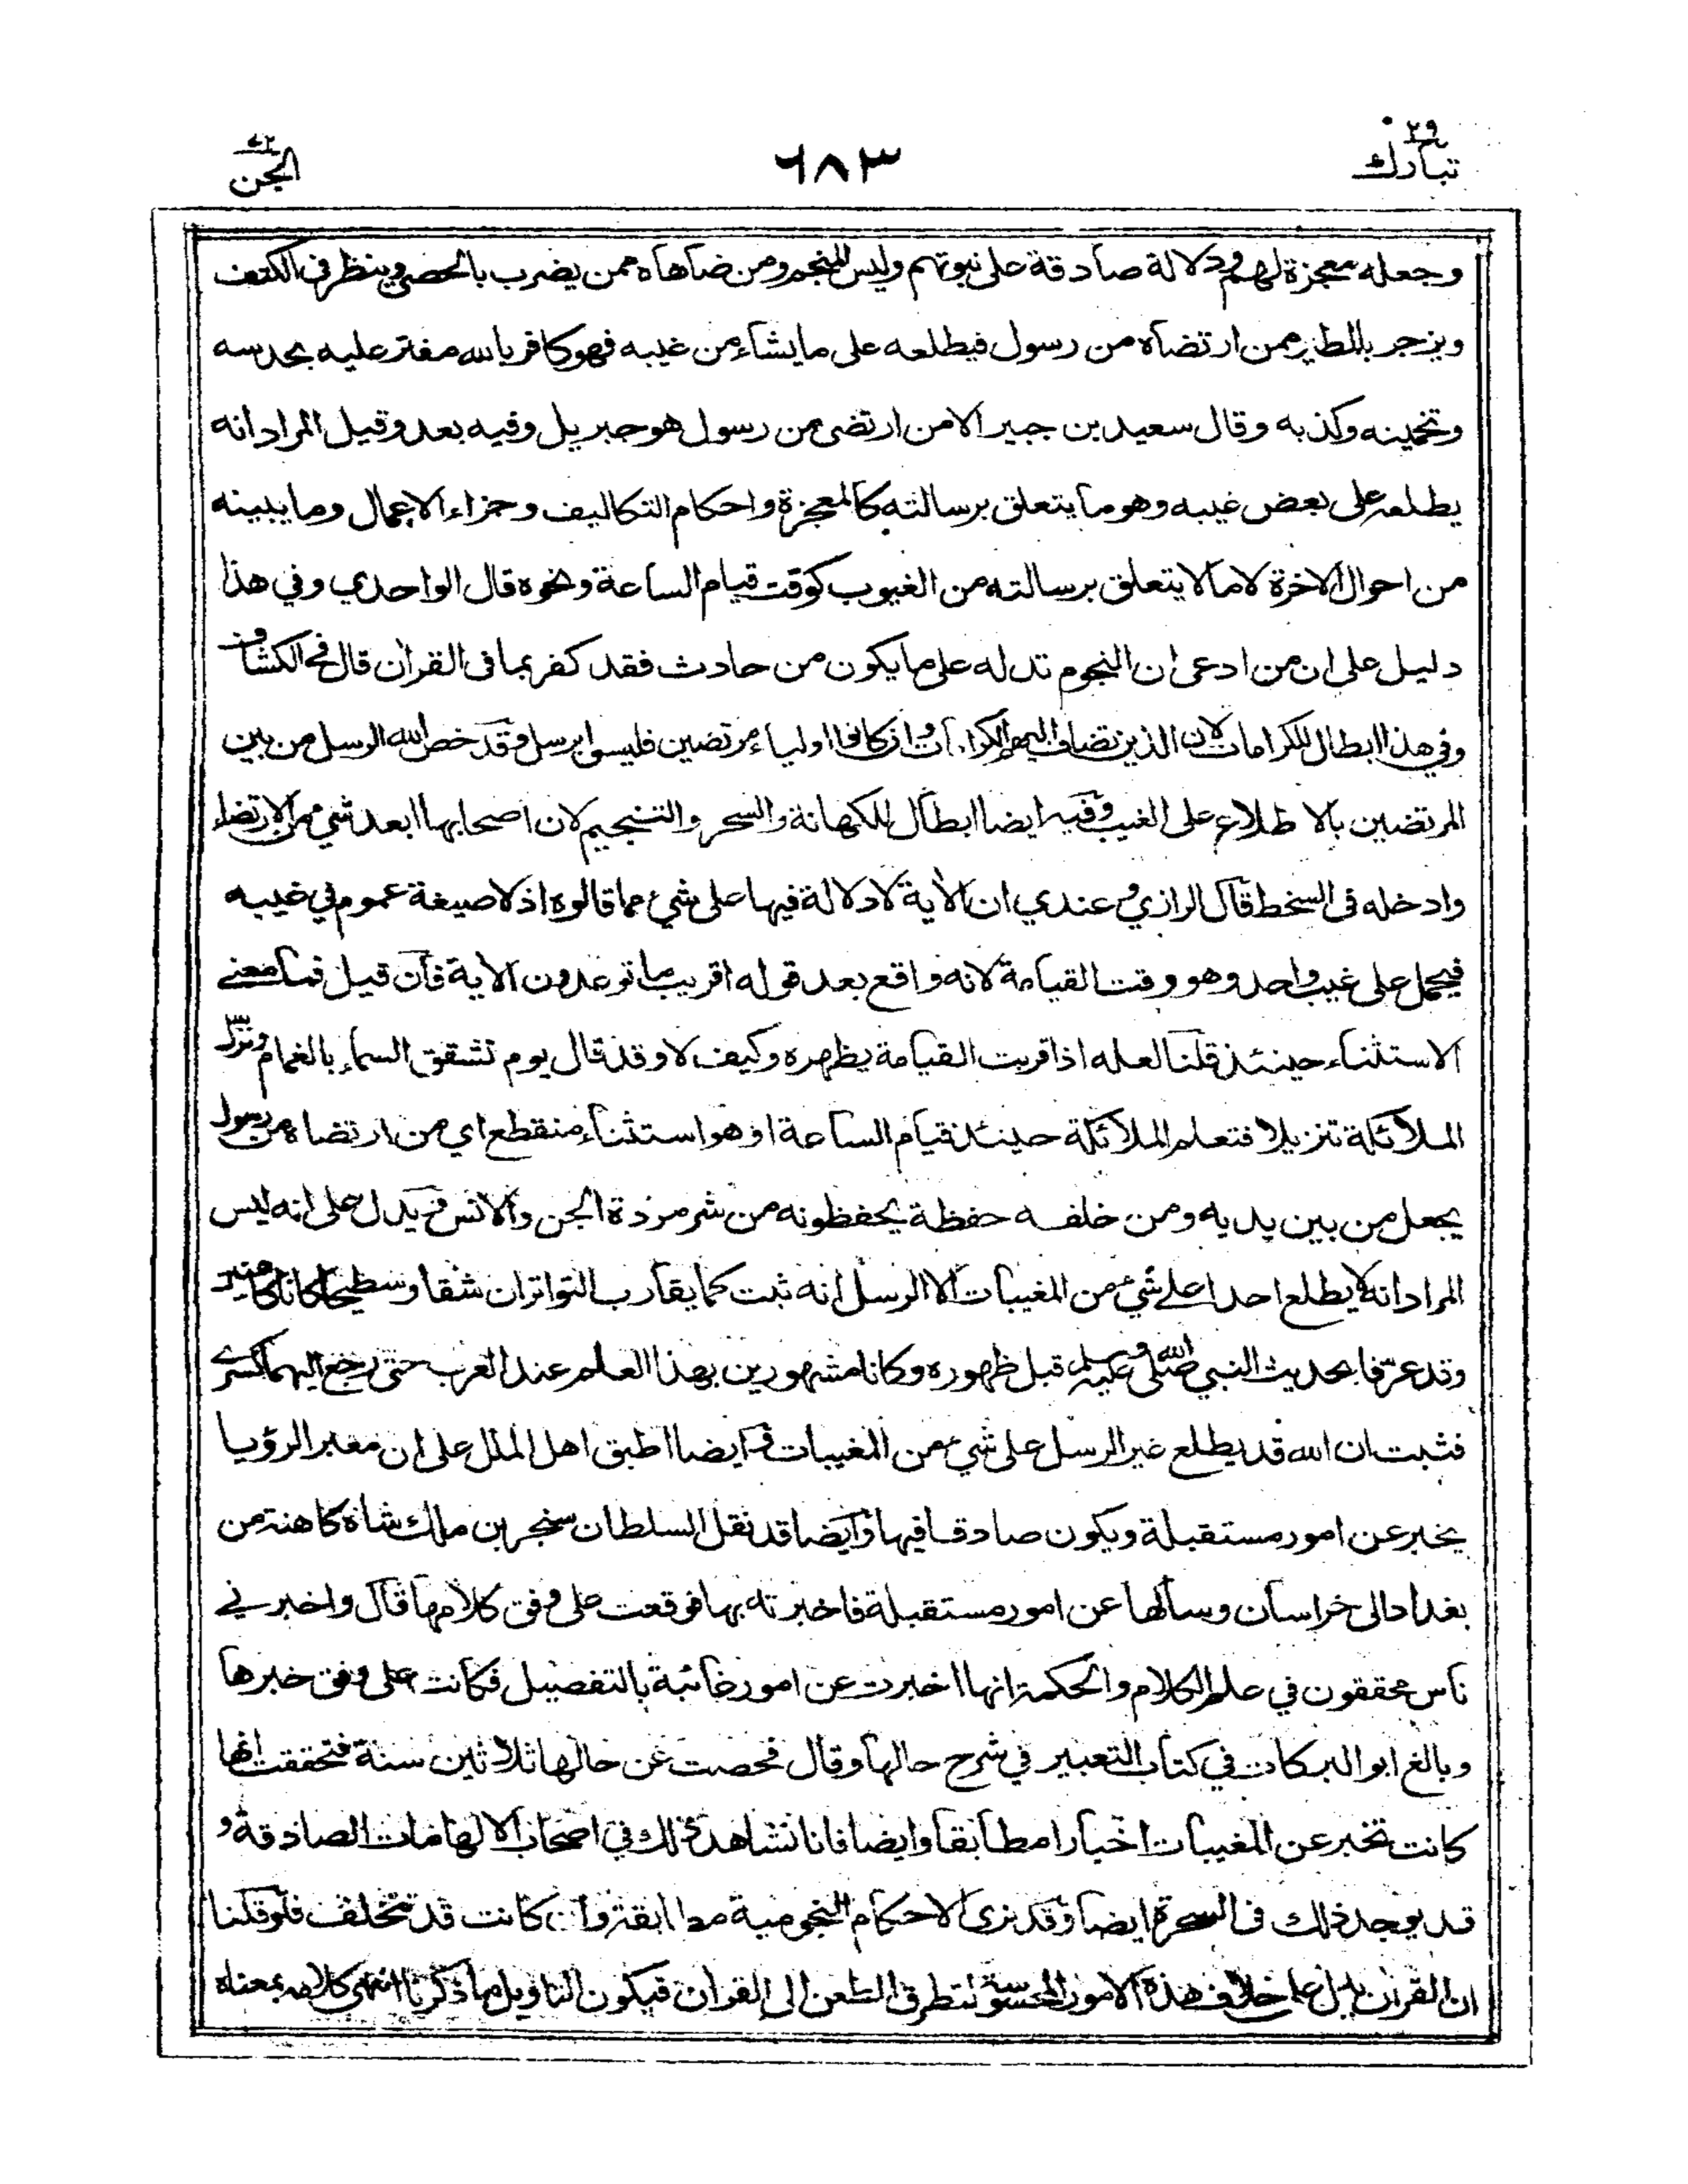 تبارك ٢٩
٦٨٣
الجن ٧٢
وجعله معجزة لهم ودلالة صادقة على نبوتهم وليس المنجم ومن ضاهاه ممن يضرب بالحصى وينظر في الكتف
ويزجر بالطير ممن ارتضاه من رسول فيطلعه على ما يشاء من غيبه فهو كافر بالله مفتر عليه بحدسه
وتخمينه وكذبه وقال سعيد بن جبير الا من ارتضى من رسول هو جبريل وفيه بعد وقيل المراد انه
يطلعه على بعض غيبه وهو ما يتعلق برسالته كالمعجزة واحكام التكاليف وجزاء الاعمال وما يبينه
من احوال الاخرة لا ما لا يتعلق برسالته من الغيوب كوقت قيام الساعة ونحوه قال الواحدي وفي هذا
دليل على ان من ادعى ان النجوم تدله على ما يكون من حادث فقد كفر بما فى القران قال في الكشاف
وفي هذا ابطال للكرامات لان الذين تضاف اليهم الكرامات وان كانوا اولياء مرتضين فليسوا برسل وقد خص الله الرسل من بين
المرتضين بالاطلاع على الغيب وفيه ايضا ابطال للكهانة والسحر والتنجيم لان اصحابها ابعد شي من الارتضاء
وادخله فى السخط قال الرازي وعندي ان الأية لا دلالة فيها على شيء مما قالوه اذ لا صيغة عموم في غيبه
فيحمل على غيب واحد وهو وقت القيامة لانه واقع بعد قوله اقريب ما توعدون الأية فان قيل فما معنى
الاستثناء حينئذ قلنا لعله اذا قربت القيامة يظهره وكيف لا وقد قال يوم تشقق السماء بالغمام ونزل
الملائكة تنزيلا فتعلم الملائكة حينئذ قيام الساعة او هو استثناء منقطع اي من ارتضاه من رسول
يجعل من بين يديه ومن خلفه حفظة يحفظونه من شر مردة الجن والانس ويدل على انه ليس
المراد انه لا يطلع احدا على شيء من المغيبات الا الرسل انه ثبت كما يقارب التواتر ان شقا وسطيحا كانا كاهنين
وقد عرفا بحديث النبي صلى الله عليه وسلم قبل ظهوره وكانا مشهورين بهذا العلم عند العرب حتى رجع اليهما كسرى
فثبت ان الله قد يطلع غير الرسل على شيء من المغيبات وايضا اطبق اهل الملل على ان معبر الرؤيا
يخبر عن امور مستقبلة ويكون صادقا فيها وايضا قد نقل السلطان سنجر بن ملك شاه كاهنة من
بغداد الى خراسان وسألها عن امور مستقبلة فاخبرته بها فوقعت على وفق كلامها قال واخبرني
ناس محققون في علم الكلام والحكمة انها اخبرت عن امور غائبة بالتفصيل فكانت على وفق خبرها
وبالغ ابو البركات في كتاب التعبير في شرح حالها وقال فحصت عن حالها ثلاثين سنة فتحققت انها
كانت تخبر عن المغيبات اخبارا مطابقا وايضا فانا نشاهد ذلك في اصحاب الالهامات الصادقة و
قد يوجد ذلك فى السحرة ايضا وقد نرى الاحكام النجومية مطابقة وان كانت قد تتخلف فلو قلنا
ان القران يدل على خلاف هذه الامور المحسوسة لتطرق الطعن الى القران فيكون التاويل ما ذكرنا انتهى كلامه بمعناه